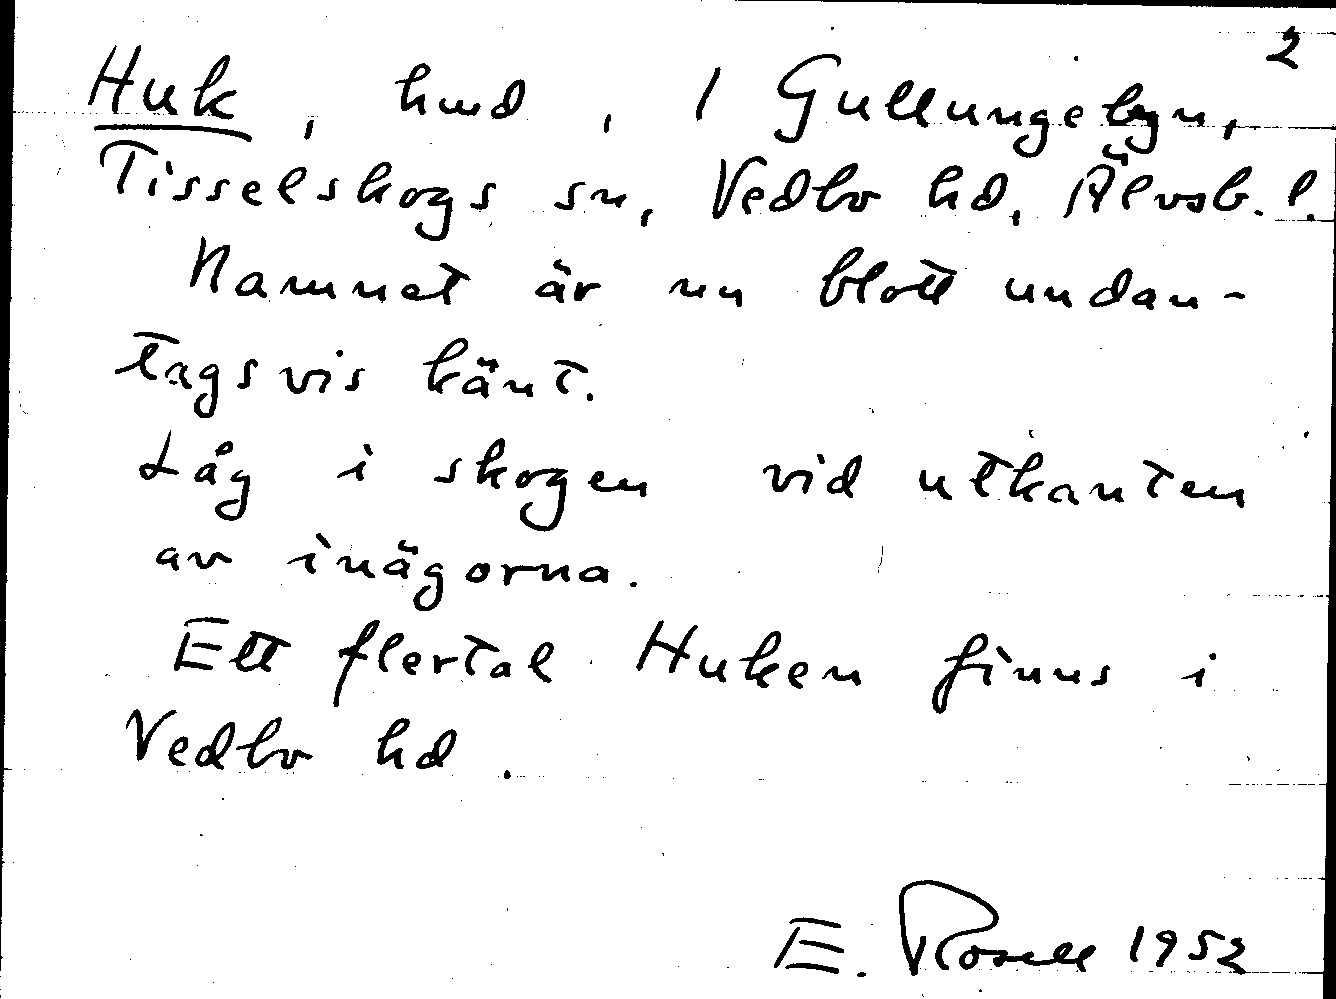 2
Huk, hmd, 1 Gullungebyn,
Tisselskogs sn, Vedbo hd, Älvsb. l.
Namnet är nu blott undan-
tagsvis känt.
Låg i skogen vid utkanten
av inägorna.
Ett flertal Huken finns i
Vedbo hd.
E. Rosell 1952